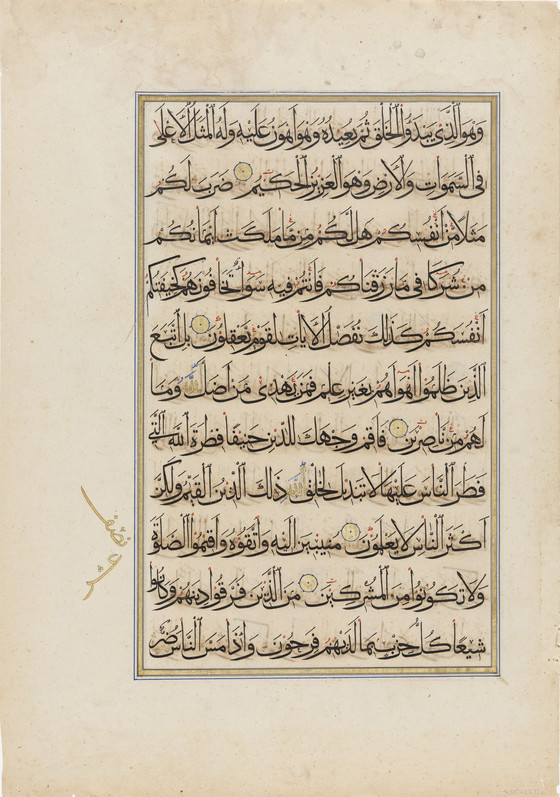 وهو الذي يبدؤا الخلق ثم يعيده وهو اهون عليه وله المثل الاعلى
في السموات والارض وهو العزيز الحكيم ضرب لكم
مثلا من انفسكم هل لكم من ما ملكت ايمانكم
من شركا في ما رزقناكم فانتم فيه سواء تخافونهم كخيفتكم
انفسكم كذلك نفصل الايات لقوم يعقلون بل اتبع
الذين ظلموا اهواهم بغير علم فمن يهدي من اضل الله وما
لهم من ناصرين فاقم وجهك للدين حنيفا فطرة الله التي
فطر الناس عليها لا تبديل لخلق الله ذلك الدين القيم ولكن
اكثر الناس لا يعلمون منيبين اليه واتقوه واقيموا الصلوة
ولا تكونوا من المشركين من الذين فرقوا دينهم وكانوا
شيعا كل حزب بما لديهم فرحون واذا مس الناس ضر
نصف
عشر